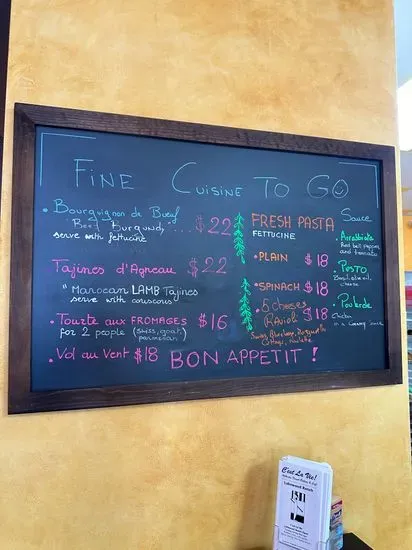 FINE CUISINE TO GO
• Bourguignon de Bœuf
Beef Burgundy .... $22
serve with fettucine
Tajines d'Agneau $22
"Marocan LAMB Tajines
serve with couscous
• Tourte aux FROMAGES $16
for 2 people (swiss, goat,
parmesan)
• Vol au Vent $18
BON APPETIT !
FRESH PASTA
FETTUCINE
• PLAIN $18
• SPINASH $18
• 5 cheeses
Ravioli $18
Sauce
• Arrabbiata
Red bell pepper
and tomato
• Pesto
Basil olive oil
cheese
• Poularde
chicken
in a creamy sauce
C'est La Vie!
Lakewood Ranch